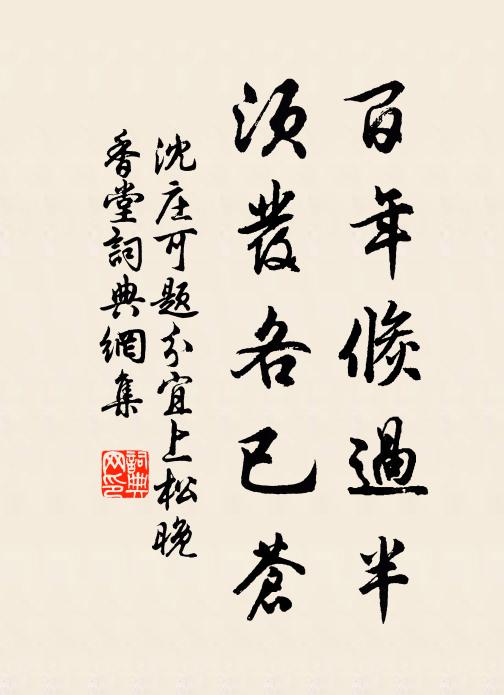 百年倏過半
須發各已蒼
沈庄可題分宜上松晚
香堂詞典網集
詞典網印